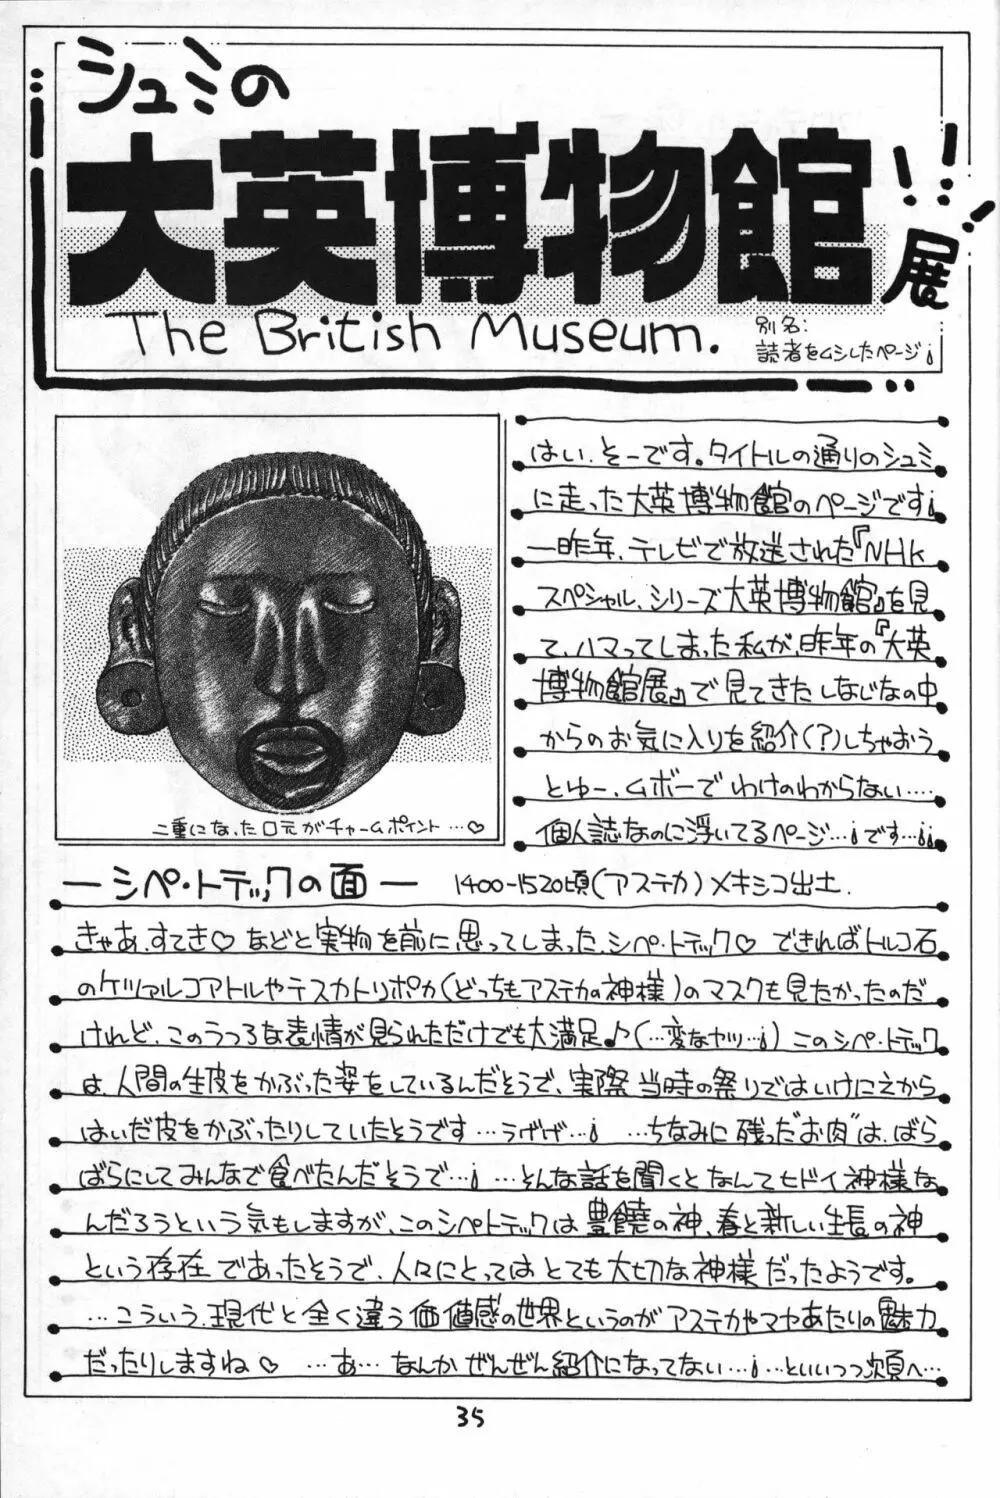 シュミの
大英博物館
展
The British Museum.
別名:
読者をムシしたページ¡
はい、そーです。タイトルの通りのシュミ
に走った大英博物館のページです¡
一昨年、テレビで放送された『NHK
スペシャル、シリーズ大英博物館』を見
て、ハマってしまった私が、昨年の『大英
博物館展』で見てきたしなじなの中
からのお気に入りを紹介(?)しちゃおう
とゆー、ムボーでわけのわからない‥‥
個人誌なのに浮いてるページ…¡です…¡¡
二重になった口元がチャームポイント…♡
—シペ・トテックの面—
1400-1520頃(アステカ)メキシコ出土.
きゃあ、すてき♡などと実物を前に思ってしまった、シペ・トテック♡できればトルコ石
のケツァルコアトルやテスカトリポカ(どっちもアステカの神様)のマスクも見たかったのだ
けれど、このうつろな表情が見られただけでも大満足♪(…変なヤツ…¡)このシペ・トテック
は、人間の生皮をかぶった姿をしているんだそうで、実際当時の祭りではいけにえから
はいだ皮をかぶったりしていたそうです…うげげ…¡ …ちなみに残った"お肉"は、ばら
ばらにしてみんなで食べたんだそうで…¡…そんな話を聞くとなんてヒドイ神様な
んだろうという気もしますが、このシペ・トテックは豊饒の神、春と新しい生長の神
という存在であったそうで、人々にとってはとても大切な神様だったようです。
…こういう、現代と全く違う価値感の世界というのがアステカやマヤあたりの魅力
だったりしますね♡ …あ…なんかぜんぜん紹介になってない…¡…といいつつ次頁へ…
35